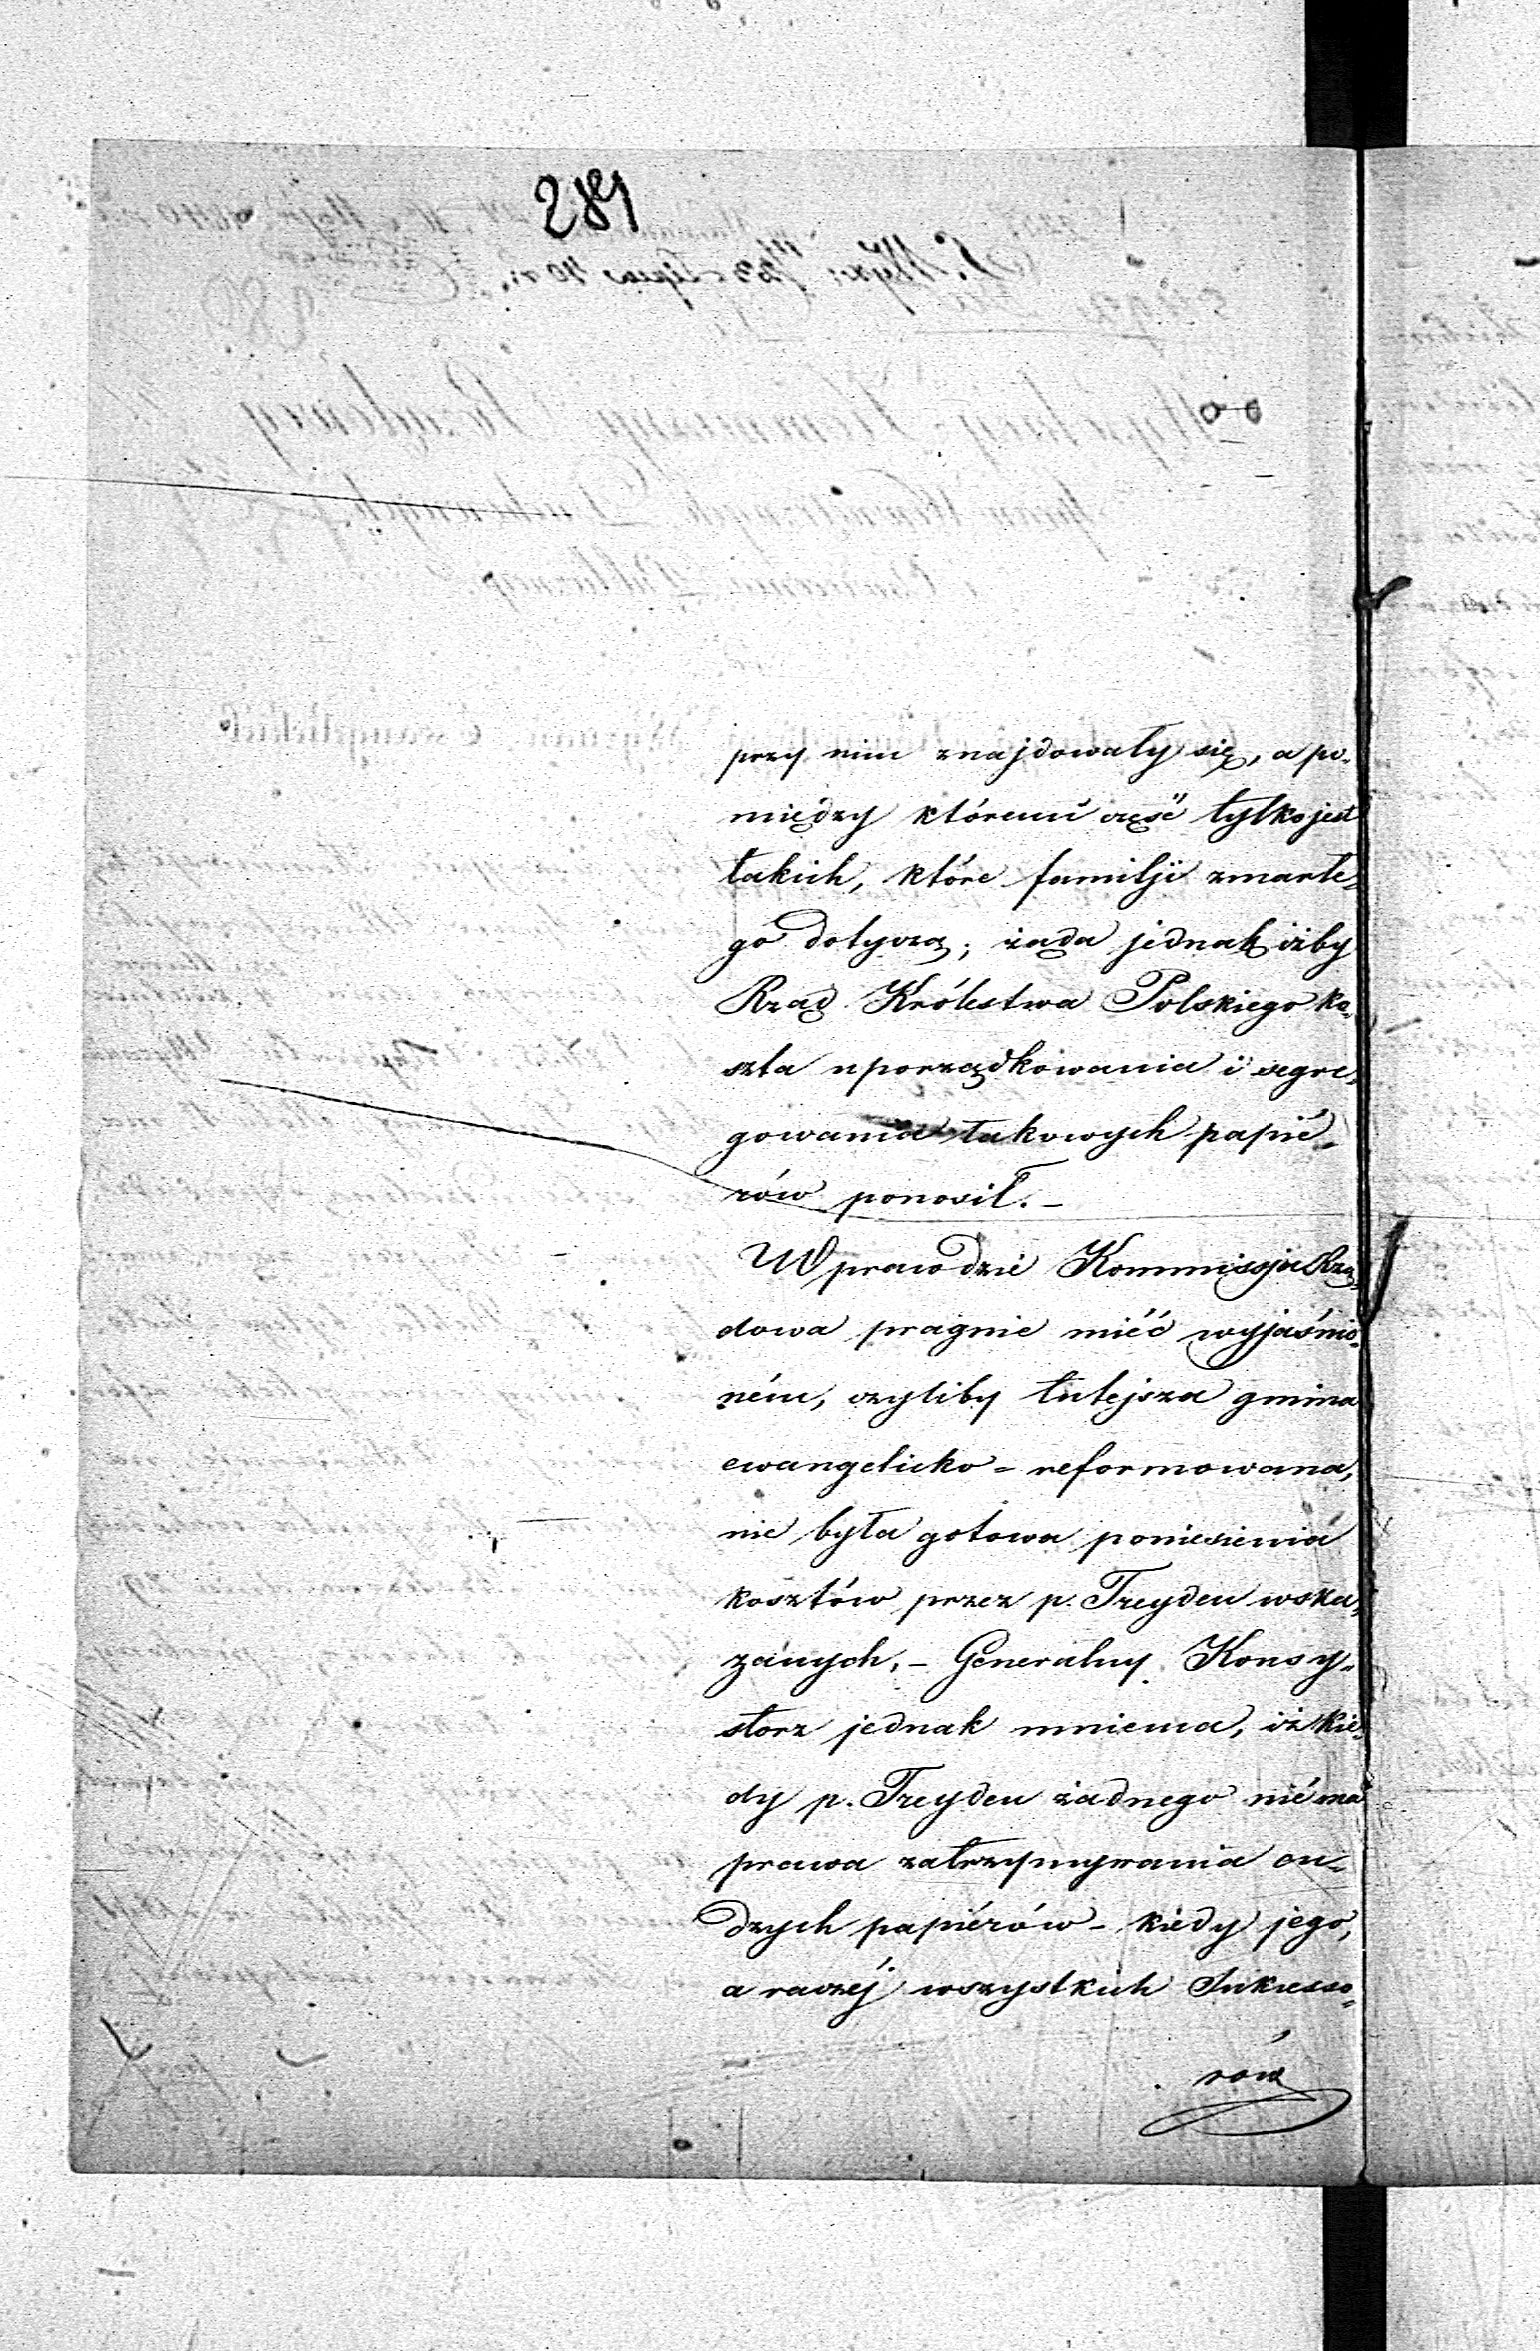 289
przy nim znajdowały się, a po-
między któremi część tylko jest
takich, które familji zmarłe-
go dotyczą; żąda jednak iżby
Rząd Królestwa Polskiego ko-
szta uporządkowania i segre-
gowania takowych papié-
rów ponosił. –
Wprawdzie Kommissja Rzą-
dowa pragnie miéć wyjaśnio-
ném, czyliby tutejsza gmina
ewangelicko-reformowana,
nie była gotowa poniesienia
kosztów przez p. Treyden wska-
zanych, – Generalny Konsy-
storz jednak mniema, iż kie-
dy p. Treyden żadnego niéma
prawa zatrzymywania cu-
dzych papiérów – kiedy jego,
a raczéj wszystkich Sukcesso-
rów